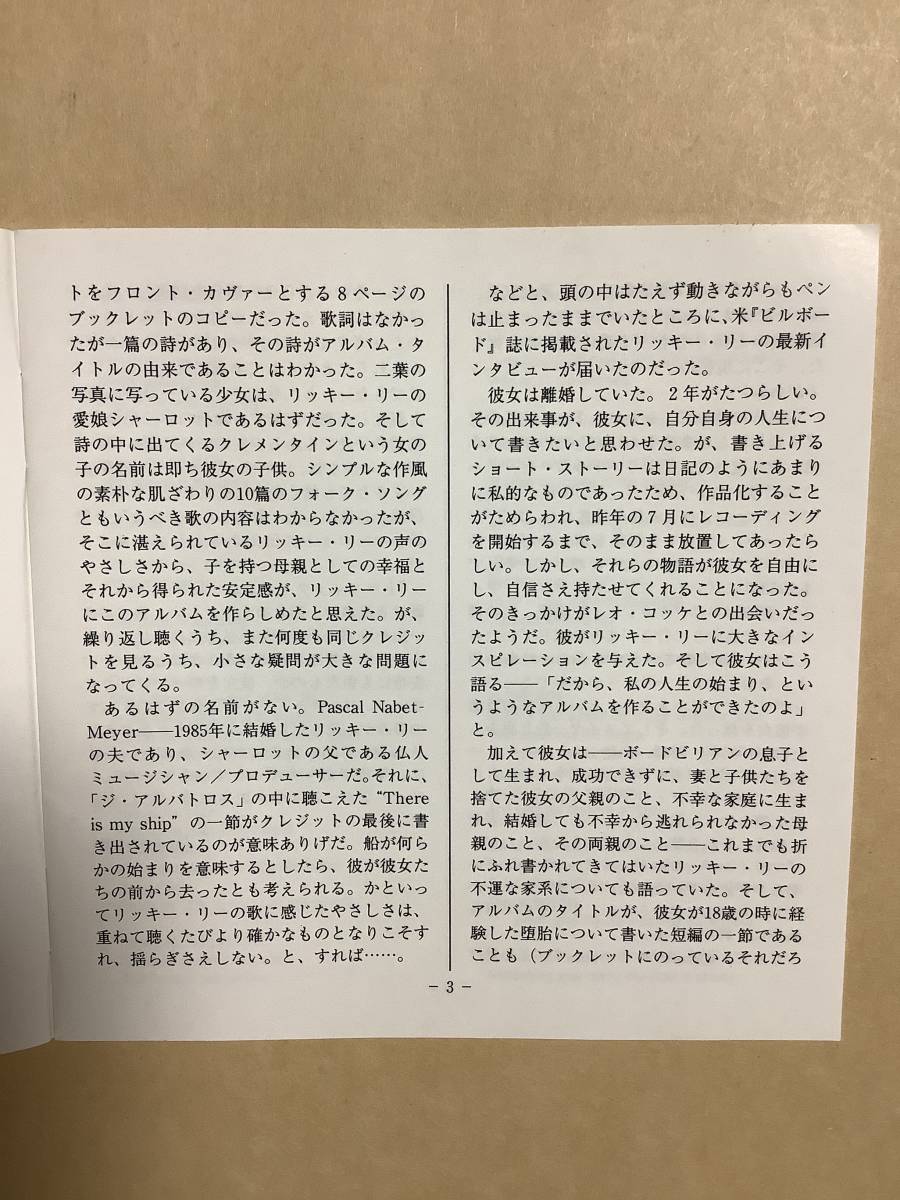 トをフロント・カヴァーとする8ページの
ブックレットのコピーだった。歌詞はなかっ
たが一篇の詩があり、その詩がアルバム・タ
イトルの由来であることはわかった。二葉の
写真に写っている少女は、リッキー・リーの
愛娘シャーロットであるはずだった。そして
詩の中に出てくるクレメンタインという女の
子の名前は即ち彼女の子供。シンプルな作風
の素朴な肌ざわりの10篇のフォーク・ソング
ともいうべき歌の内容はわからなかったが、
そこに湛えられているリッキー・リーの声の
やさしさから、子を持つ母親としての幸福と
それから得られた安定感が、リッキー・リー
にこのアルバムを作らしめたと思えた。が、
繰り返し聴くうち、また何度も同じクレジッ
トを見るうち、小さな疑問が大きな問題に
なってくる。
あるはずの名前がない。Pascal Nabet-
Meyer——1985年に結婚したリッキー・リー
の夫であり、シャーロットの父である仏人
ミュージシャン／プロデューサーだ。それに、
「ジ・アルバトロス」の中に聴こえた“There
is my ship”の一節がクレジットの最後に書
き出されているのが意味ありげだ。船が何ら
かの始まりを意味するとしたら、彼が彼女た
ちの前から去ったとも考えられる。かといっ
てリッキー・リーの歌に感じたやさしさは、
重ねて聴くたびより確かなものとなりこそす
れ、揺らぎさえしない。と、すれば……。
などと、頭の中はたえず動きながらもペン
は止まったままでいたところに、米『ビルボー
ド』誌に掲載されたリッキー・リーの最新イ
ンタビューが届いたのだった。
彼女は離婚していた。2年がたつらしい。
その出来事が、彼女に、自分自身の人生につ
いて書きたいと思わせた。が、書き上げる
ショート・ストーリーは日記のようにあまり
に私的なものであったため、作品化すること
がためらわれ、昨年の7月にレコーディング
を開始するまで、そのまま放置してあったら
しい。しかし、それらの物語が彼女を自由に
し、自信さえ持たせてくれることになった。
そのきっかけがレオ・コッケとの出会いだっ
たようだ。彼がリッキー・リーに大きなイン
スピレーションを与えた。そして彼女はこう
語る——「だから、私の人生の始まり、とい
うようなアルバムを作ることができたのよ」
と。
加えて彼女は——ボードビリアンの息子と
して生まれ、成功できずに、妻と子供たちを
捨てた彼女の父親のこと、不幸な家庭に生ま
れ、結婚しても不幸から逃れられなかった母
親のこと、その両親のこと——これまでも折
にふれ書かれてきてはいたリッキー・リーの
不運な家系についても語っていた。そして、
アルバムのタイトルが、彼女が18歳の時に経
験した堕胎について書いた短編の一節である
ことも（ブックレットにのっているそれだろ
－3－